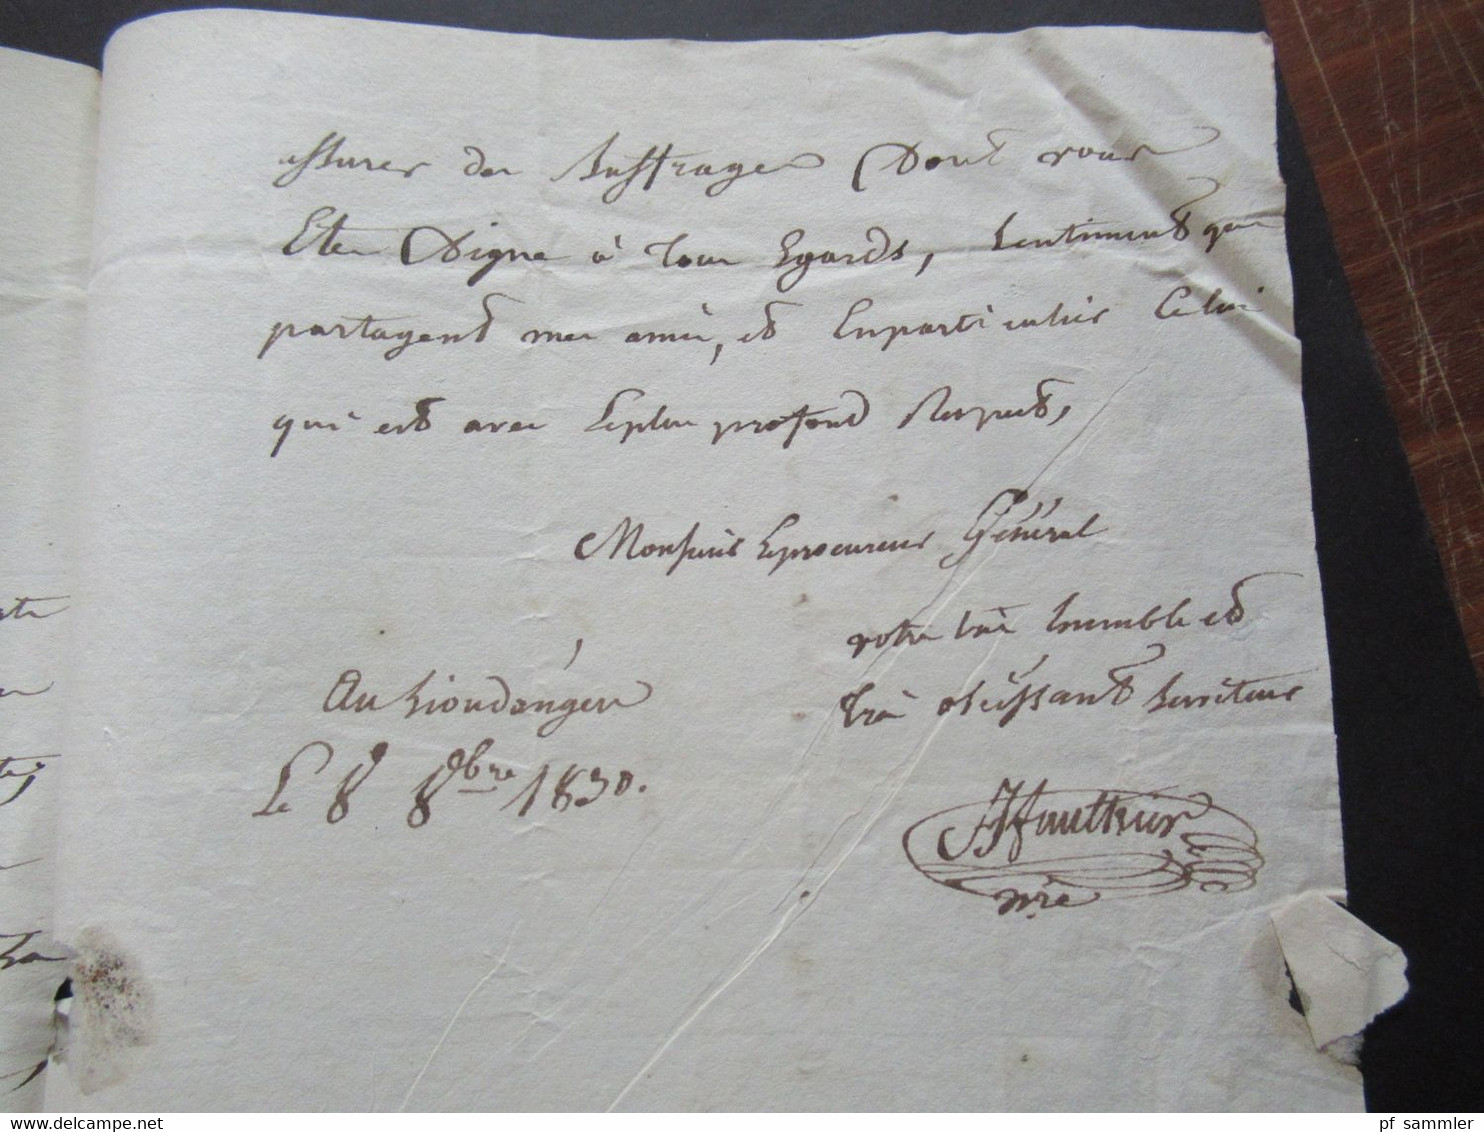 assurer des suffrages Dont vous
Etes Digne à tous Egards, sentiments que
partagent mes amis, et Enparticulier Celui
qui est avec Leplus profond Respect,
Monsieur Leprocureur Général
votre très humble et
très obéissant serviteur
Au Liondangers
Le 8 8bre 1830.
Nre
pf_sammler